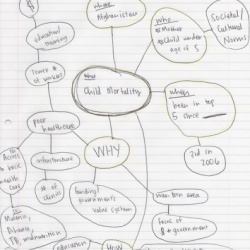 $
where
Afghanistan
Who
Mother
Child under
age of 5
Societal/
Cultural
Norms
educational
training
lower #
of workers
what
Child Mortality
when
been in top
5 since
2nd in
2006
poor
healthcare
WHY
Access
to basic
health
care
infrastructure
# of clinics
funding
government's
value system
war torn area
focus of
$ + government
Malaria,
Disease,
TB, malnutrition
education
HOW